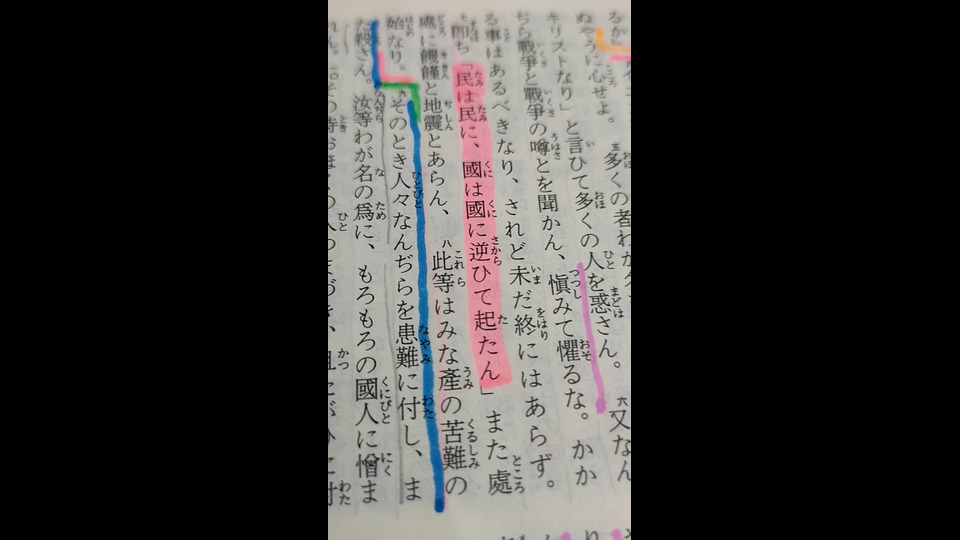 ぬやうに心せよ。五多くの者わが
キリストなり」と言ひて多くの人を惑さん。六又なん
ぢら戰爭と戰爭の噂とを聞かん、愼みて懼るな。かか
る事はあるべきなり、されど未だ終にはあらず。
七即ち「民は民に、國は國に逆ひて起たん」また處
處に饑饉と地震とあらん、八此等はみな產の苦難の
始なり。九そのとき人々なんぢらを患難に付し、ま
た殺さん。汝等わが名の爲に、もろもろの國人に憎ま